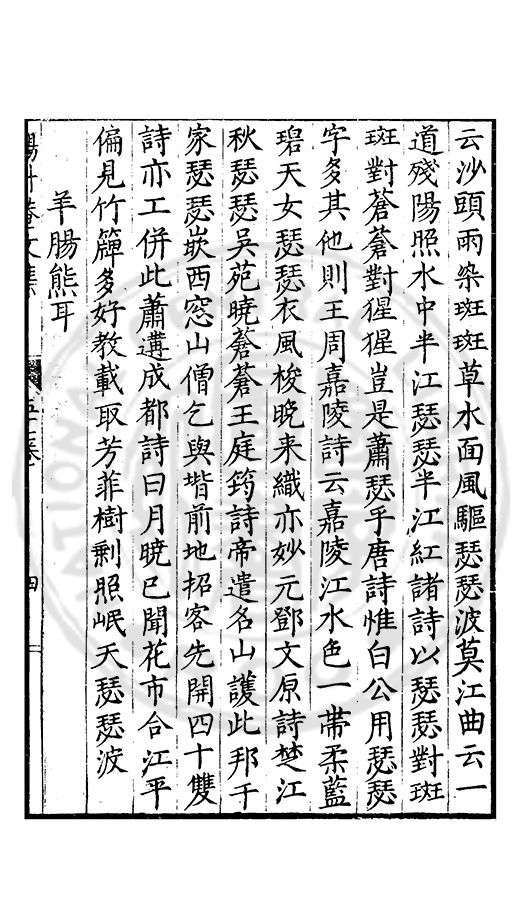 云沙頭雨染斑斑草水面風驅瑟瑟波莫江曲云一
道殘陽照水中半江瑟瑟半江紅諸詩以瑟瑟對斑
斑對蒼蒼對猩猩豈是蕭瑟乎唐詩惟白公用瑟瑟
字多其他則王周嘉陵詩云嘉陵江水色一帶柔藍
碧天女瑟瑟衣風梭晚来織亦妙元鄧文原詩楚江
秋瑟瑟吳苑曉蒼蒼王庭筠詩帝遣名山護此邦千
家瑟瑟嵌西窓山僧乞與堦前地招客先開四十雙
詩亦工併此蕭遘成都詩曰月曉已聞花市合江平
偏見竹簰多好教載取芳菲樹剩照岷天瑟瑟波
羊腸熊耳
四